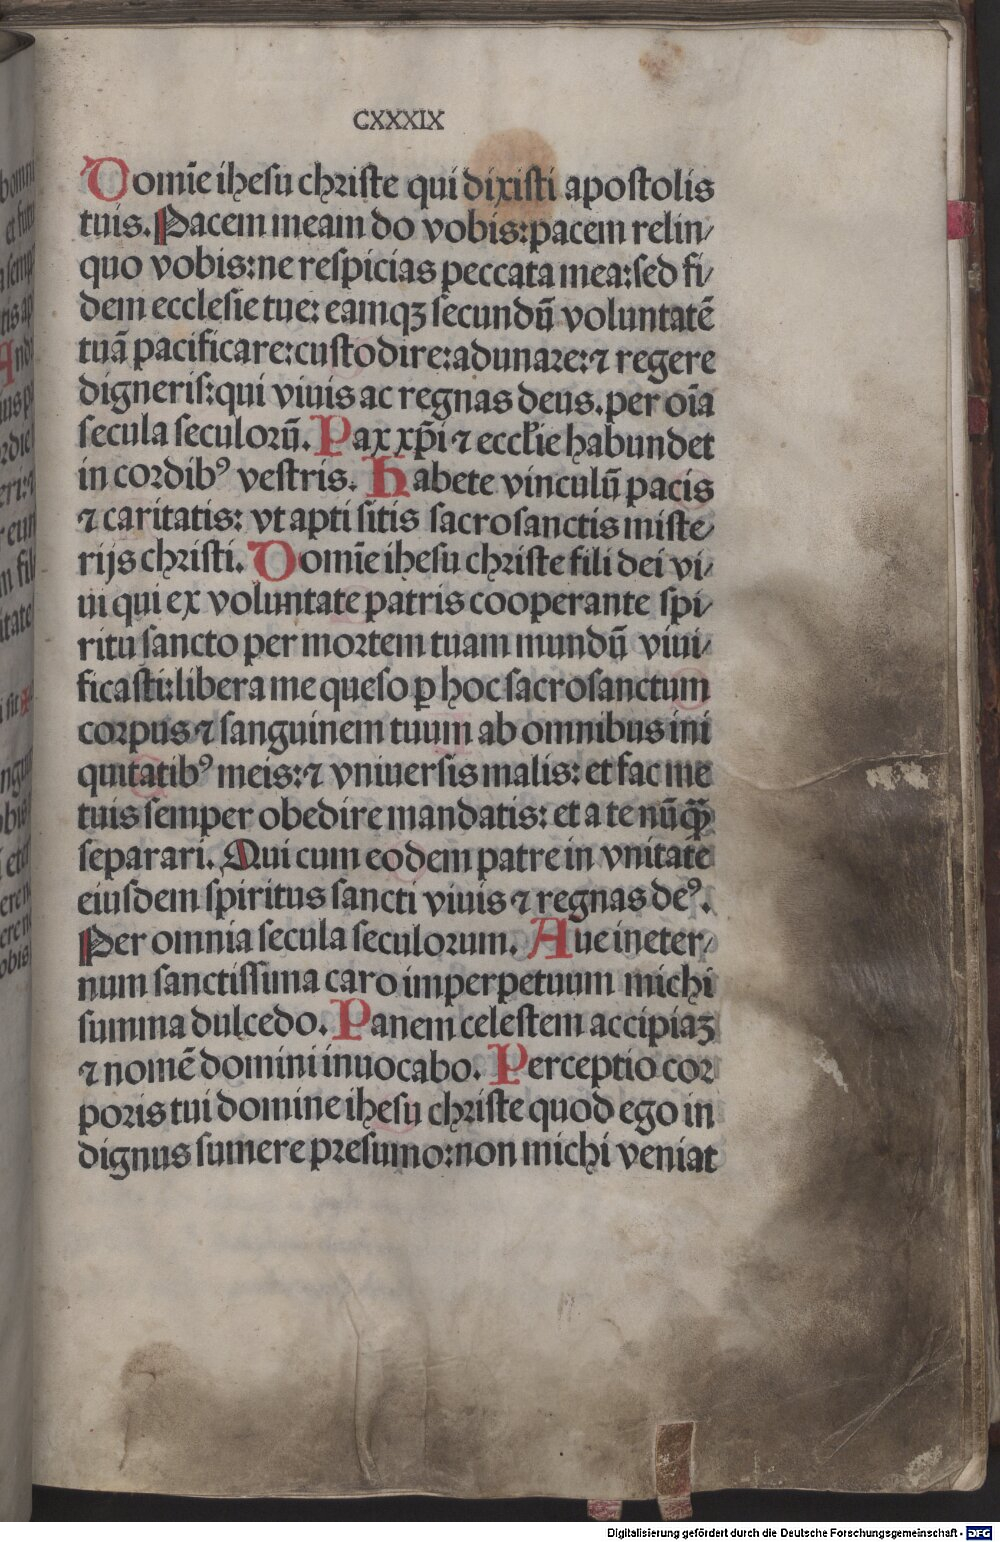 CXXXIX
Domīe ihesu christe qui dixisti apostolis
tuis. Pacem meam do vobis: pacem relin/
quo vobis: ne respicias peccata mea: sed fi/
dem ecclesie tue: eamqꝫ secundū voluntatē
tuā pacificare: custodire: adunare: ⁊ regere
digneris: qui viuis ac regnas deus. per oīa
secula seculorū. Pax xp̄i ⁊ eccl̄ie habundet
in cordibꝰ vestris. Habete vinculū pacis
⁊ caritatis: vt apti sitis sacrosanctis miste/
rijs christi. Domīe ihesu christe fili dei vi/
ui qui ex voluntate patris cooperante spi/
ritu sancto per mortem tuam mundū viui/
ficasti: libera me queso ꝑ hoc sacrosanctum
corpus ⁊ sanguinem tuum ab omnibus ini
quitatibꝰ meis: ⁊ vniuersis malis: et fac me
tuis semper obedire mandatis: et a te nūqꝫ̄
separari. Qui cum eodem patre in vnitate
eiusdem spiritus sancti viuis ⁊ regnas deꝰ.
Per omnia secula seculorum. Aue in eter/
num sanctissima caro imperpetuum michi
summa dulcedo. Panem celestem accipiaꝫ
⁊ nomē domini inuocabo. Perceptio cor
poris tui domine ihesu christe quod ego in
dignus sumere presumo: non michi veniat
Digitalisierung gefördert durch die Deutsche Forschungsgemeinschaft - DFG